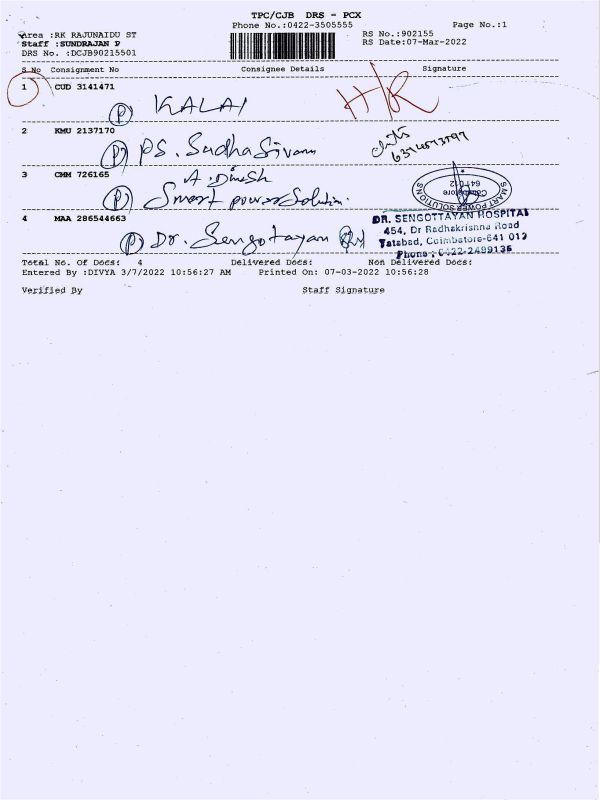 TPC/CJB DRS - PCX
Phone No.:0422-3505555 Page No.:1
Area :RK RAJUNAIDU ST RS No.:902155
Staff :SUNDRAJAN P RS Date:07-Mar-2022
DRS No. :DCJB90215501
S No Consignment No Consignee Details Signature
1 CUD 3141471
(P) KALAI H/R
2 KMU 2137170
(P) PS. Sudha Sivam
3 CMM 726165 A. Dinesh
(P) Smart power Solution.
SMART POWER SOLUTION
Coimbatore
641 012
4 MAA 286544663
(P) Dr. Sengotayan
DR. SENGOTTAYAN HOSPITAL
454, Dr Radhakrishna Road
Tatabad, Coimbatore-641 012
Phone : 0422-2499136
Total No. Of Docs: 4 Delivered Docs: Non Delivered Docs:
Entered By :DIVYA 3/7/2022 10:56:27 AM Printed On: 07-03-2022 10:56:28
Verified By Staff Signature